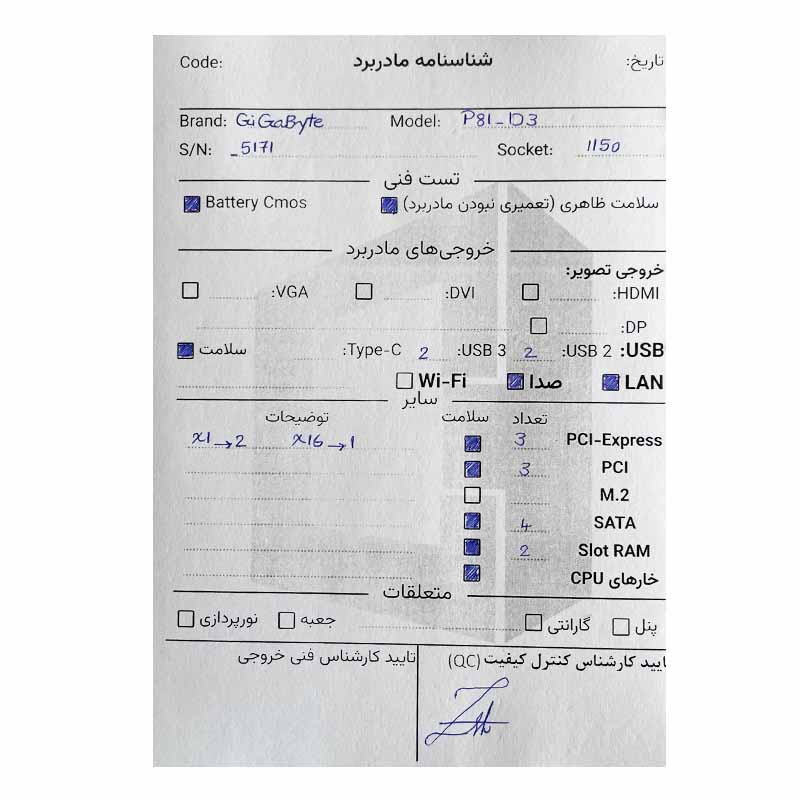 Code: شناسنامه مادربرد تاریخ:
Brand: GiGaByte Model: P81_D3
S/N: _5171 Socket: 1150
تست فنی
سلامت ظاهری (تعمیری نبودن مادربرد) Battery Cmos
خروجی‌های مادربرد
خروجی تصویر:
HDMI: DVI: VGA:
DP:
USB: USB 2: 2 USB 3: 2 Type-C: سلامت
LAN صدا Wi-Fi
سایر
تعداد سلامت توضیحات
PCI-Express 3 x16→1 x1→2
PCI 3
M.2
SATA 4
Slot RAM 2
خارهای CPU
متعلقات
پنل گارانتی جعبه نورپردازی
تایید کارشناس کنترل کیفیت (QC) تایید کارشناس فنی خروجی